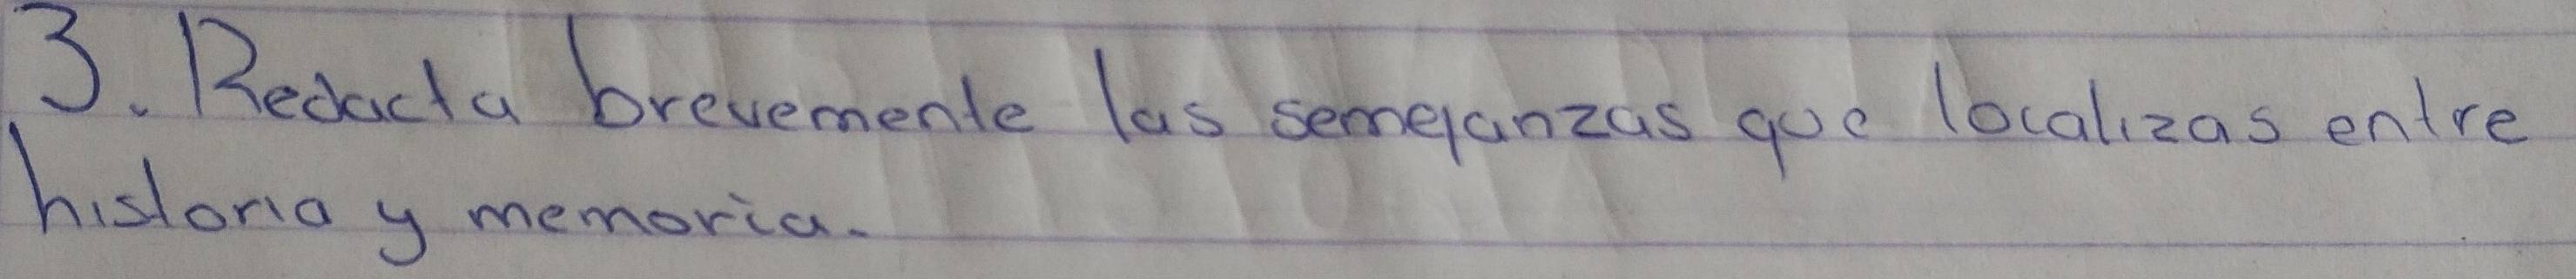 3. Redacta brevemente las semejanzas que localizas entre
historia y memoria.